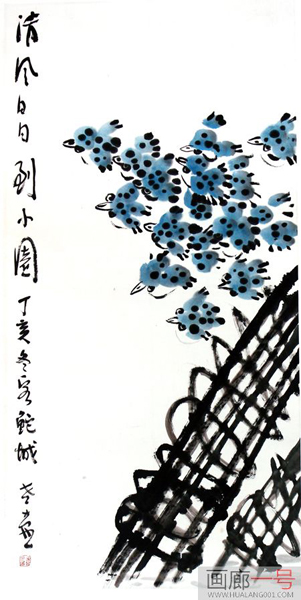 清风日日到小園
丁亥冬客鮀城
画廊一号
WWW.HUALANG001.COM